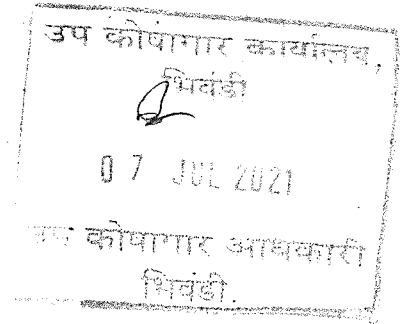 उप कोषागार कार्यालय,
भिवंडी
07 JUL 2021
उप कोषागार अधिकारी
भिवंडी.